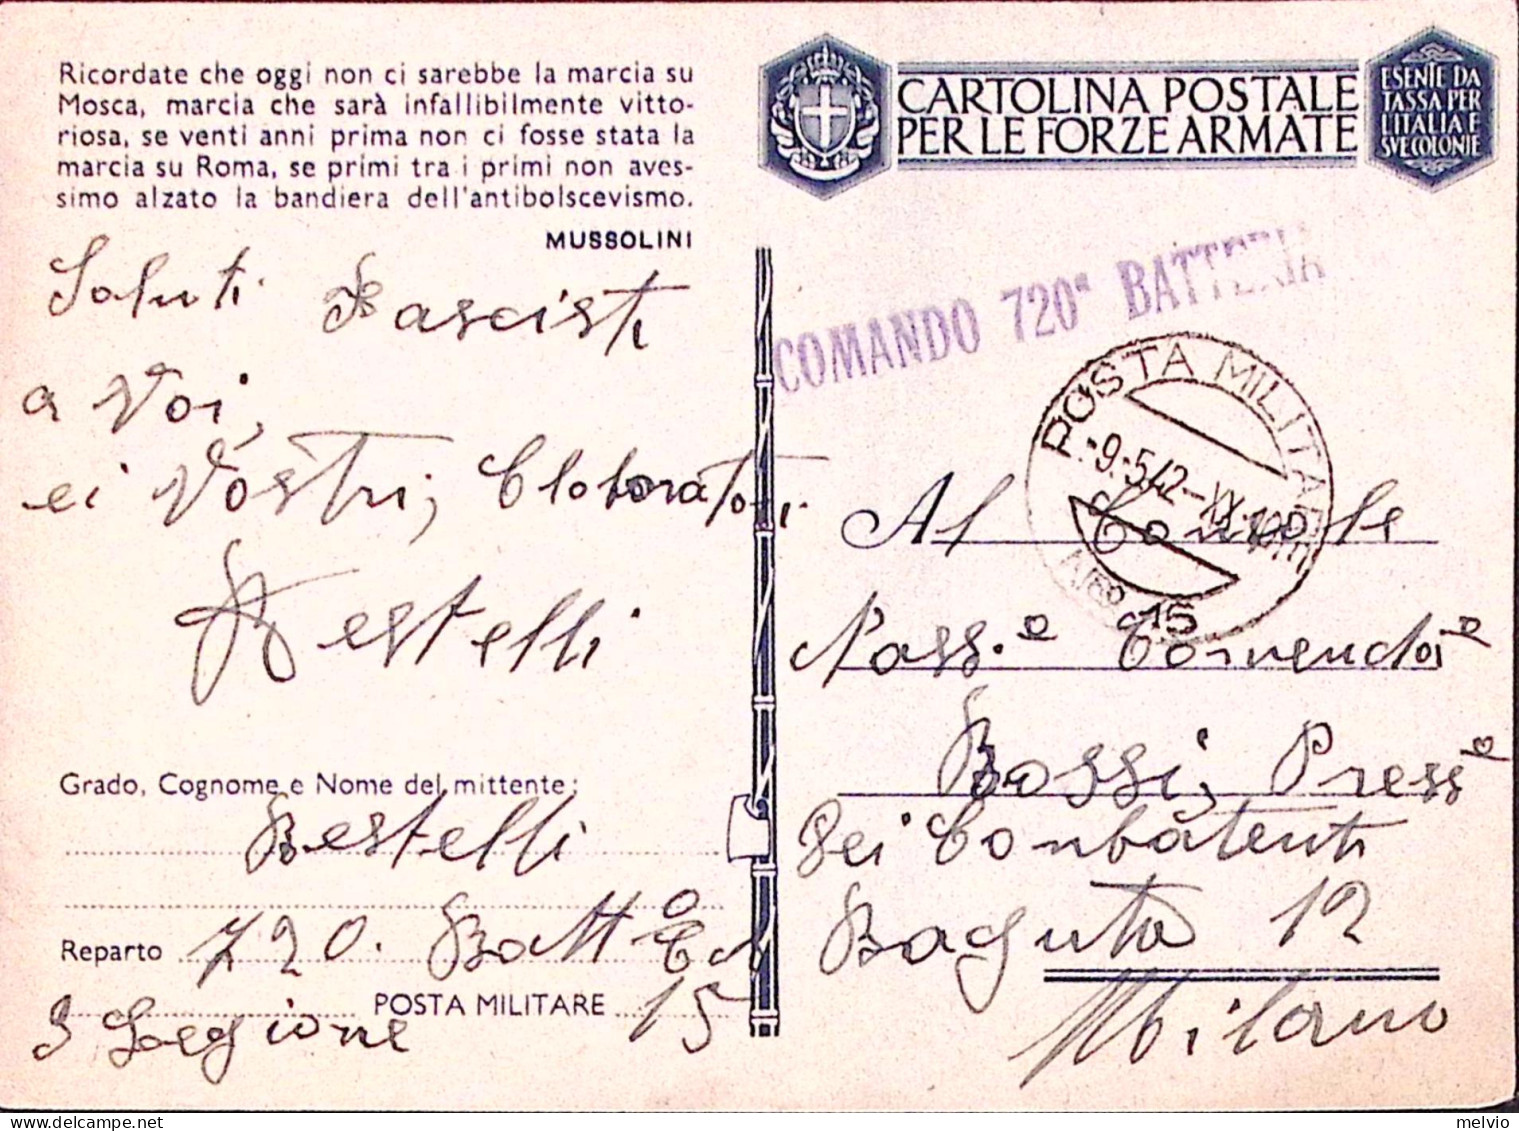 Ricordate che oggi non ci sarebbe la marcia su
Mosca, marcia che sarà infallibilmente vitto-
riosa, se venti anni prima non ci fosse stata la
marcia su Roma, se primi tra i primi non aves-
simo alzato la bandiera dell'antibolscevismo.
MUSSOLINI
Saluti Fascisti
a Voi,
ei Vostri,
Restelli
Grado, Cognome e Nome del mittente:
Restelli
Reparto 720. Batt
3 Legione POSTA MILITARE 15
CARTOLINA POSTALE
PER LE FORZE ARMATE
ESENTE DA
TASSA PER
L'ITALIA E
SUE COLONIE
COMANDO 720ª BATTERIA
POSTA MILITARE
-9-5.42-XX
15
Al Console
Nass.e Comendre
Bossi, Press
Dei Combatenti
Baguta 12
Milano
melvio